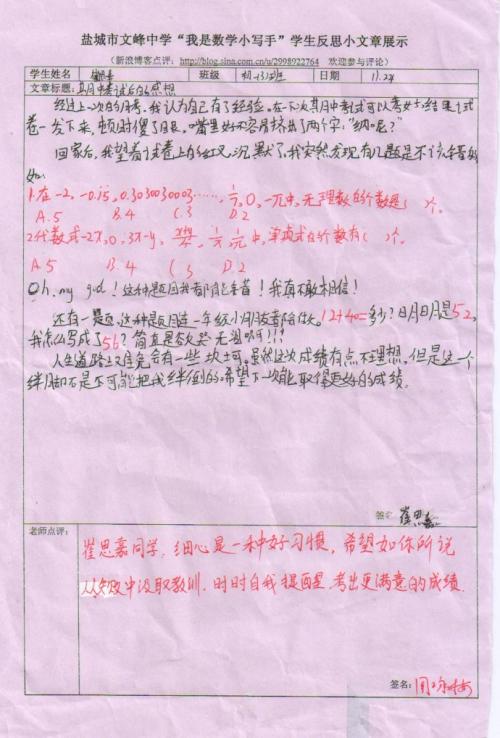 盐城市文峰中学“我是数学小写手”学生反思小文章展示
(新浪博客点评：http://blog.sina.com.cn/u/2998922764 欢迎参与评论)
学生姓名 崔思嘉 班级 初一(3)班 日期 11.24
文章标题： 期中考试后的感想
经过上一次的月考，我认为自己有了经验。在下次期中考试可以考好，结果试
卷一发下来，顿时傻了眼。嘴里好不容易挤出了两个字：“纳呢？”
回家后，我望着试卷上的红叉，沉默了，我突然发现有几题是不该错的
如：
1.在-2，-0.15，0.3030030003……，1/7，0，-π中，无理数的个数是( )个。
A.5 B.4 C.3 D.2
2代数式-2x，0，3x-y，，，中，单项式的个数有( )个。
A.5 B.4 C3 D.2
Oh，my god！这种题目我都能错！我真不敢相信！
还有一题，这种题目连一年级小朋友都会做。12+40=多少？明明是52，
我怎么写成了56？简直是愚蠢无语啊！！？
人生道路上又怎会有一些坎坷。虽然这次成绩有点不理想。但是这一个
绊脚石是不可能把我绊倒的。希望下一次能取得更好的成绩。
签名： 崔思嘉
老师点评：
崔思嘉同学，细心是一种好习惯，希望如你所说
从失败中汲取教训，时时自我提醒，考出更满意的成绩.
签名：